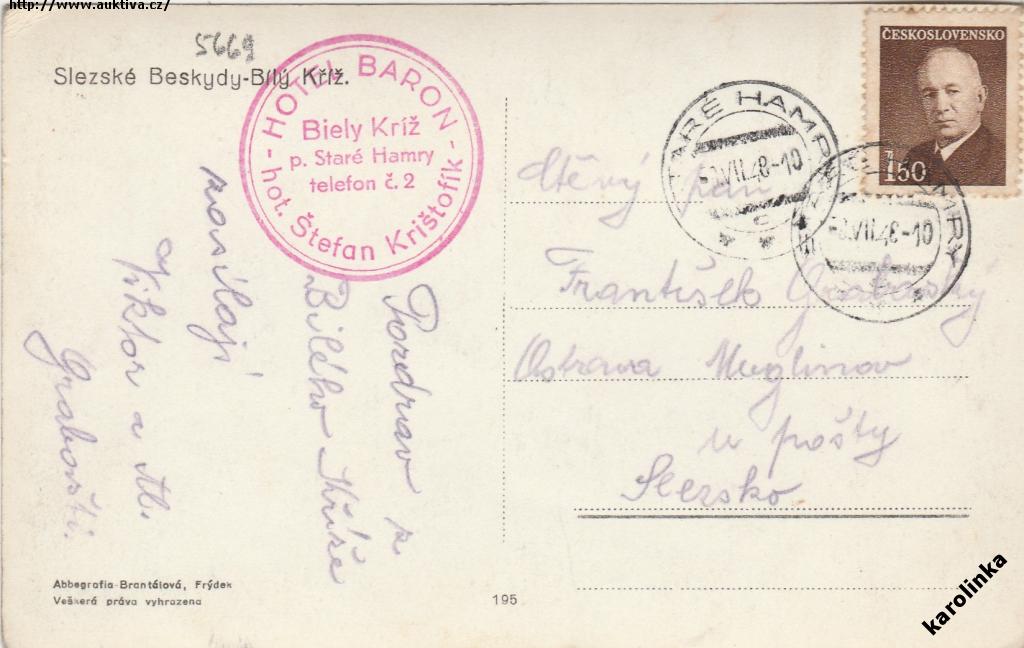 http://www.auktiva.cz/
5669
Slezské Beskydy-Bílý Kříž.
HOTEL BARON
Biely Kríž
p. Staré Hamry
telefon č. 2
- hot. Štefan Krištofík -
Pozdrav z
Bílého Kříže
zasílají
Viktor a
Grabovští.
Abbegrafia-Brantálová, Frýdek
Veškerá práva vyhrazena
195
ČESKOSLOVENSKO
1.50
STARÉ HAMRY
VII.48-10
STARÉ HAMRY
VII.48-10
pan
František
Ostrava Muglinov
u pošty
Slezsko
karolinka